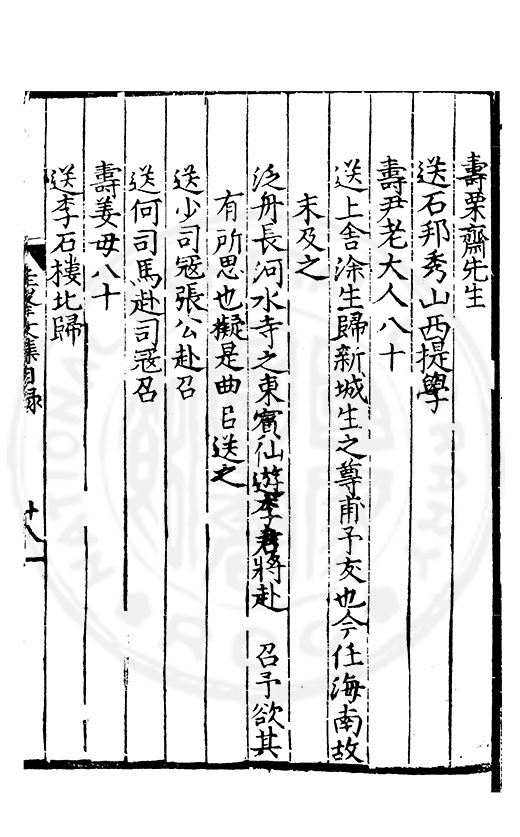 壽栗齋先生
送石邦秀山西提學
壽尹老大人八十
送上舍涂生歸新城生之尊甫予友也今任海南故
末及之
泛舟長河水寺之東賓仙遊李君將赴　召予欲其
有所思也擬是曲㠯送之
送少司寇張公赴召
送何司馬赴司寇召
壽姜母八十
送李石樓北歸
文集目録